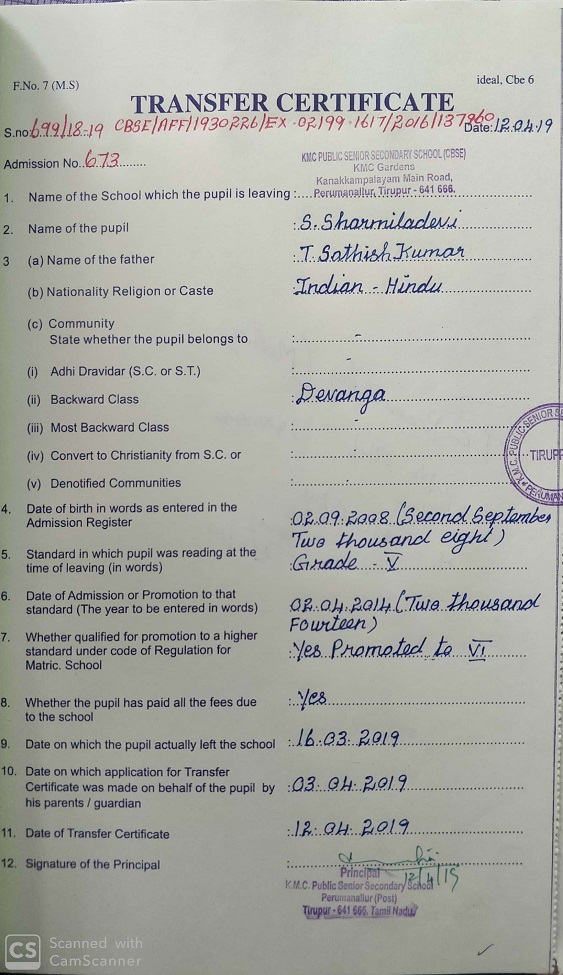 F.No. 7 (M.S)
ideal, Cbe 6
TRANSFER CERTIFICATE
S.no:699/18-19 CBSE/AFF/1930226/EX-02199-1617/2016/137960 Date:12.04.19
Admission No. 673
KMC PUBLIC SENIOR SECONDARY SCHOOL (CBSE)
KMC Gardens
Kanakkampalayam Main Road,
Perumanallur, Tirupur - 641 666.
1. Name of the School which the pupil is leaving :
2. Name of the pupil : S. Sharmiladevi
3 (a) Name of the father : T. Sathish Kumar
(b) Nationality Religion or Caste : Indian - Hindu
(c) Community
State whether the pupil belongs to : -
(i) Adhi Dravidar (S.C. or S.T.) : -
(ii) Backward Class Devanga
(iii) Most Backward Class : -
(iv) Convert to Christianity from S.C. or : -
(v) Denotified Communities : -
K.M.C. PUBLIC SENIOR SE
TIRUPP
PERUMAN
4. Date of birth in words as entered in the : 02.09.2008 (Second September
Admission Register Two thousand eight)
5. Standard in which pupil was reading at the : Grade - V
time of leaving (in words)
6. Date of Admission or Promotion to that : 02.04.2014 (Two thousand
standard (The year to be entered in words) Fourteen)
7. Whether qualified for promotion to a higher : Yes Promoted to VI
standard under code of Regulation for
Matric. School
8. Whether the pupil has paid all the fees due : Yes
to the school
9. Date on which the pupil actually left the school : 16.03.2019
10. Date on which application for Transfer : 03.04.2019
Certificate was made on behalf of the pupil by
his parents / guardian
11. Date of Transfer Certificate : 12.04.2019
12. Signature of the Principal :
12/4/19
Principal
K.M.C. Public Senior Secondary School
Perumanallur (Post)
Tirupur - 641 666. Tamil Nadu
CS Scanned with
CamScanner